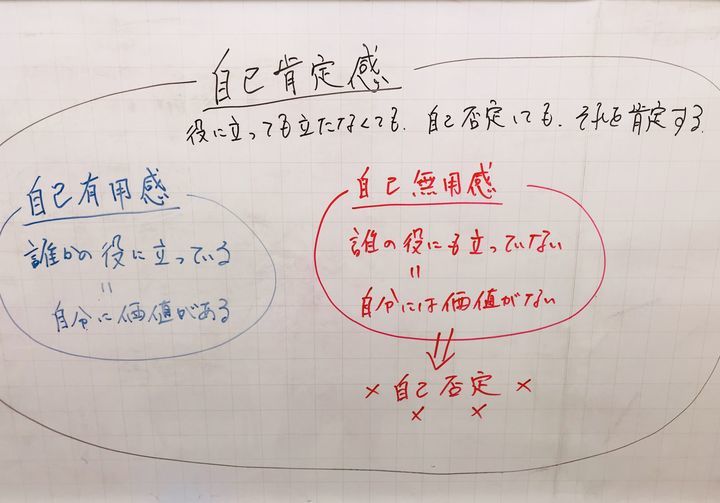 自己肯定感
役に立っても立たなくても、自己否定しても、それを肯定する
自己有用感
誰かの役に立っている
=
自分に価値がある
自己無用感
誰の役にも立っていない
=
自分には価値がない
⇓
× 自己否定 ×
× ×